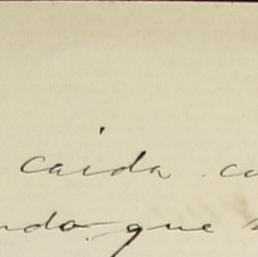 caida cu
ndo que